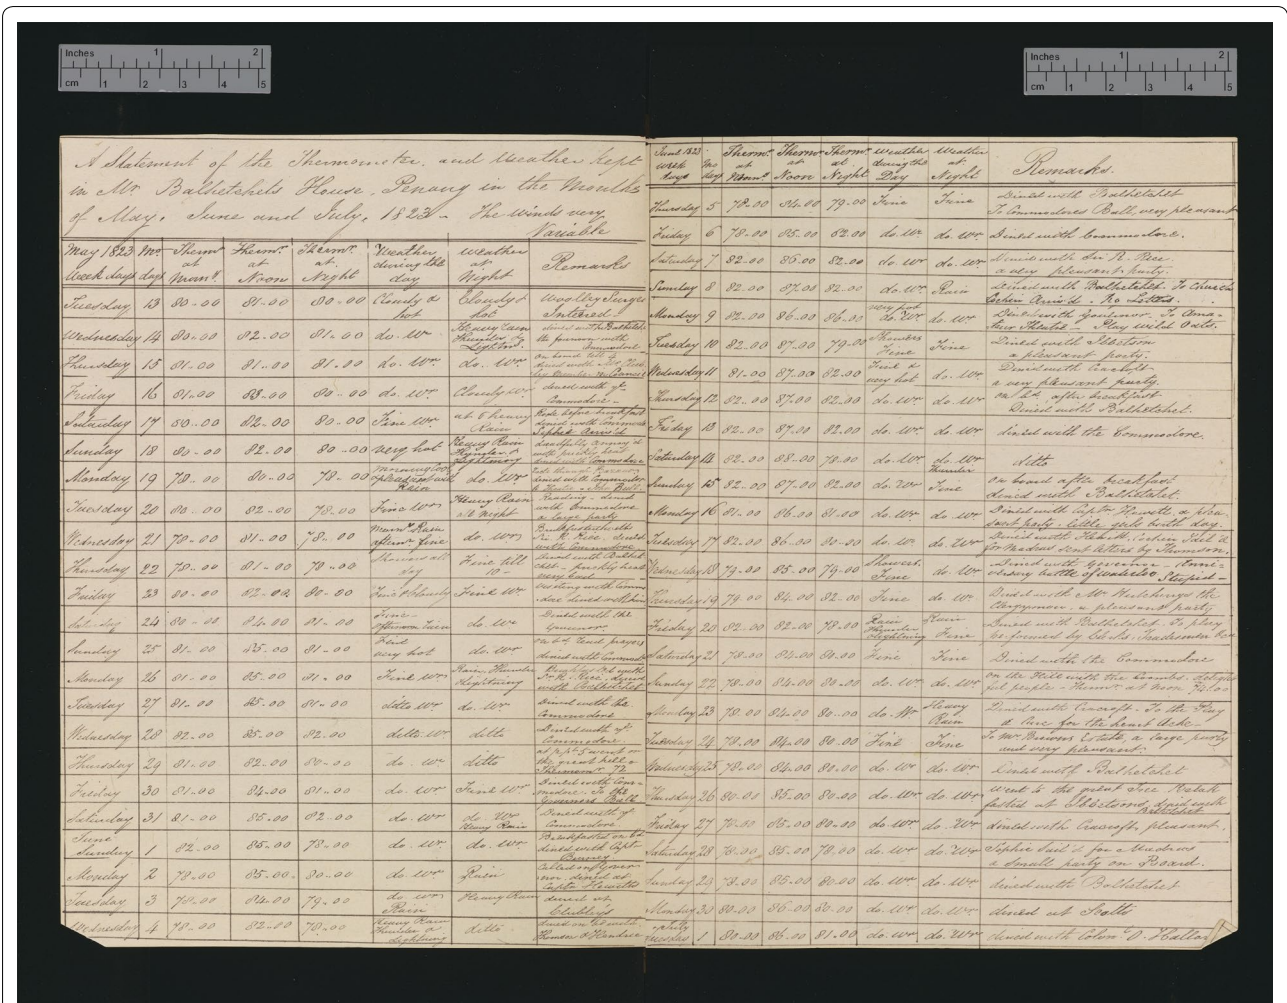 Inches 1 2
cm 1 2 3 4 5
Inches 1 2
cm 1 2 3 4 5
A Statement of the Thermometer, and Weather kept
in Mr Balhetchets House, Penang in the Months
of May, June and July, 1823 - The Winds very
Variable
May 1823 Week days Mo. days Thermr. at Morng. Thermr. at Noon Thermr. at Night Weather during the day Weather at Night Remarks
Tuesday 13 80-00 81-00 80-00 Cloudy & hot Cloudy & hot
Wednesday 14 80-00 82-00 81-00 do. Wr. Heavy rain Thunder &
Thursday 15 81-00 81-00 81-00 do. Wr. do. Wr.
Friday 16 81-00 88-00 80-00 do. Wr. Cloudy Wr. dined with ye. Commodore -
Saturday 17 80-00 82-00 80-00 Fine Wr at 8 heavy Rain Rode before breakfast dined with Commodore
Sunday 18 80-00 82-00 80-00 very hot Heavy Rain Thunder & Lightning
Monday 19 78-00 80-00 78-00 Rain do. Wr
Tuesday 20 80-00 82-00 78-00 Fine Wr Heavy Rain all night Reading - dined with Commodore a large party
Wednesday 21 78-00 81-00 78-00 Morng. Rain aftern. Fine do. Wr Breakfasted with Sir R. Rice, dined with Commodore
Thursday 22 78-00 81-00 78-00 Showers all day Fine till 10 -
Friday 23 80-00 82-00 80-00 Fine & Cloudy Fine Wr
24 80-00 84-00 81-00 Fine - afternoon rain do. Wr Dined with the Governor
Sunday 25 81-00 85-00 81-00 Fine very hot do. Wr dined with Commodore
Monday 26 81-00 85-00 81-00 Fine Wr Rain Thunder Lightning Breakfasted with Sir R. Rice, dined with Balhetchet
Tuesday 27 81-00 85-00 81-00 ditto Wr do. Wr Dined with the Commodore
Wednesday 28 82-00 85-00 82-00 ditto Wr ditto Dined with ye. Commodore
Thursday 29 81-00 82-00 80-00 do. Wr ditto the great hill
Friday 30 81-00 84-00 81-00 do. Wr Fine Wr dined with Commodore. To the Governors Ball
Saturday 31 81-00 85-00 82-00 do. Wr do. Wr Heavy Rain Dined with ye Commodore
June
Sunday 1 82-00 85-00 78-00 do. Wr. do. Wr. Breakfasted on bd. dined with Capt.
Monday 2 78-00 85-00 80-00 do. Wr Rain Called on Governor dined at Captn Hewetts
Tuesday 3 78-00 84-00 79-00 do. Wr Rain Heavy Rain dined at
Wednesday 4 78-00 82-00 78-00 Heavy Rain Thunder & Lightning ditto
June 1823 week days Mo. days Thermr. at Mornng. Thermr. at Noon Thermr. at Night Weather during the Day Weather at Night Remarks.
Thursday 5 78-00 84-00 79-00 Fine Fine Dined with Balhetchet To Commodores Ball, very pleasant
Friday 6 78-00 85-00 82-00 do. Wr. do. Wr. Dined with Commodore.
Saturday 7 82-00 86-00 82-00 do. Wr do. Wr. dined with Sir R. Rice a very pleasant party.
Sunday 8 82-00 87-00 82-00 do. Wr Rain Dined with Balhetchet. To Church Cochin Arriv'd. No Letters.
Monday 9 82-00 86-00 86-00 very hot do. Wr do. Wr. Dined with Governor. To Amateur Theatre - Play Wild Oats.
Tuesday 10 82-00 87-00 79-00 Showers Fine Fine Dined with Ibbetson a pleasant party.
Wednesday 11 81-00 87-00 82-00 Fine & very hot do. Wr. Dined with Cracroft - a very pleasant party.
Thursday 12 82-00 87-00 82-00 do. Wr. do. Wr. on bd. after breakfast - Dined with Balhetchet.
Friday 13 82-00 87-00 82-00 do. Wr do. Wr dined with the Commodore.
Saturday 14 82-00 88-00 78-00 do. Wr. do. Wr. Thunder ditto
Sunday 15 82-00 87-00 82-00 do. Wr Fine on board after breakfast dined with Balhetchet.
Monday 16 81-00 86-00 81-00 do. Wr. do. Wr. Dined with Captn. Hewett, a pleasant party. Little girls birth day.
Tuesday 17 82-00 86-00 80-00 do. Wr do. Wr Dined with Hewett. Cochin Sail'd for Madras sent letters by Thomson.
Wednesday 18 79-00 85-00 79-00 Showers Fine do. Wr. Dined with Governor - Anniversary battle of Waterloo Stupid -
Thursday 19 79-00 84-00 82-00 Fine do. Wr. Dined with Mr Hutchings the Clergyman, a pleasant party
Friday 20 82-00 82-00 78-00 Rain Thunder Lightning Rain Fine Dined with Balhetchet. To play
Saturday 21 78-00 84-00 80-00 Fine Fine Dined with the Commodore
Sunday 22 78-00 84-00 80-00 do. Wr. do. Wr. on the Hill with the Coombs. delightful people - Thermr. at noon 74.00
Monday 23 78-00 84-00 80-00 do. Wr Heavy Rain Dined with Cracroft - To the Play a Cure for the heart Ache -
Tuesday 24 79-00 84-00 80-00 Fine Fine To Mr. Browns Estate, a large party and very pleasant.
Wednesday 25 78-00 84-00 80-00 do. Wr. do. Wr. Dined with Balhetchet
Thursday 26 80-00 85-00 80-00 do. Wr. do. Wr. went to the great Tree Breakfasted at Ibbetsons, dined with Balhetchet
Friday 27 78-00 85-00 80-00 do. Wr. do. Wr dined with Cracroft, pleasant.
Saturday 28 78-00 85-00 78-00 do. Wr. do. Wr Sophie Sail'd for Madras a Small party on Board.
Sunday 29 78-00 85-00 80-00 do. Wr. do. Wr. dined with Balhetchet
Monday 30 80-00 86-00 80-00 do. Wr. do. Wr. dined at Scotts
July
Tuesday 1 80-00 86-00 81-00 do. Wr do. Wr dined with Colonl. O. Hallor